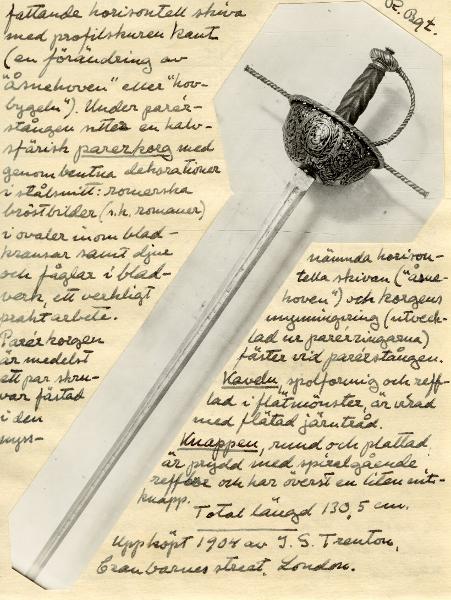 R. Bgt.
fattande horisontell skiva
med profilskuren kant
(en förändring av
"åsnehoven" eller "hov-
bygeln"). Under parér-
stången sitter en halv-
sfärisk parérkorg med
genombrutna dekorationer
i stålsnitt: romerska
bröstbilder (s.k. romaner)
i ovaler inom blad-
kransar samt djur
och fåglar i blad-
verk, ett verkligt
praktarbete.
Parérkorgen
är medelst
ett par skru-
var fästad
i den
nyss-
nämnda horison-
tella skivan ("åsne-
hoven") och korgens
mynningsring (utveck-
lad ur parérringarna)
fäster vid parérstången.
Kaveln, spolformig och reff-
lad i flätmönster, är virad
med flätad järntråd.
Knappen, rund och plattad,
är prydd med spiralgående
refflor och har överst en liten nit-
knapp.
Total längd 130,5 cm.
Uppköpt 1904 av I. S. Trenton,
Cranbarnes street, London.